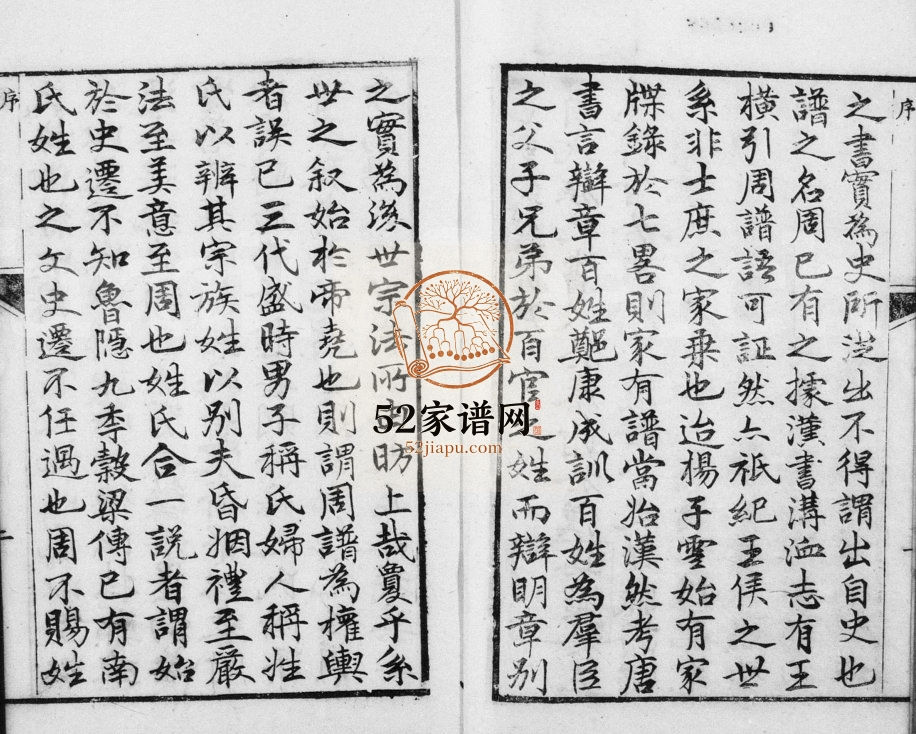 序
之書實為史所從出不得謂出自史也
譜之名周已有之據漢書溝洫志有王
橫引周譜語可証然亦祇紀王侯之世
系非士庶之家乗也迨楊子雲始有家
牒錄於七畧則家有譜當始漢然考唐
書言辯章百姓鄭康成訓百姓為羣臣
之父子兄弟於百官之姓而辯明章别
之實為後世宗法所由昉上哉敻乎系
世之叙始於帝堯也則謂周譜為權輿
者誤已三代盛時男子稱氏婦人稱姓
氏以辨其宗族姓以别夫昏姻禮至嚴
法至美意至周也姓氏合一說者謂始
於史遷不知魯隱九季穀梁傳已有南
氏姓也之文史遷不任過也周不賜姓
序
二
52家谱网
52jiapu.com